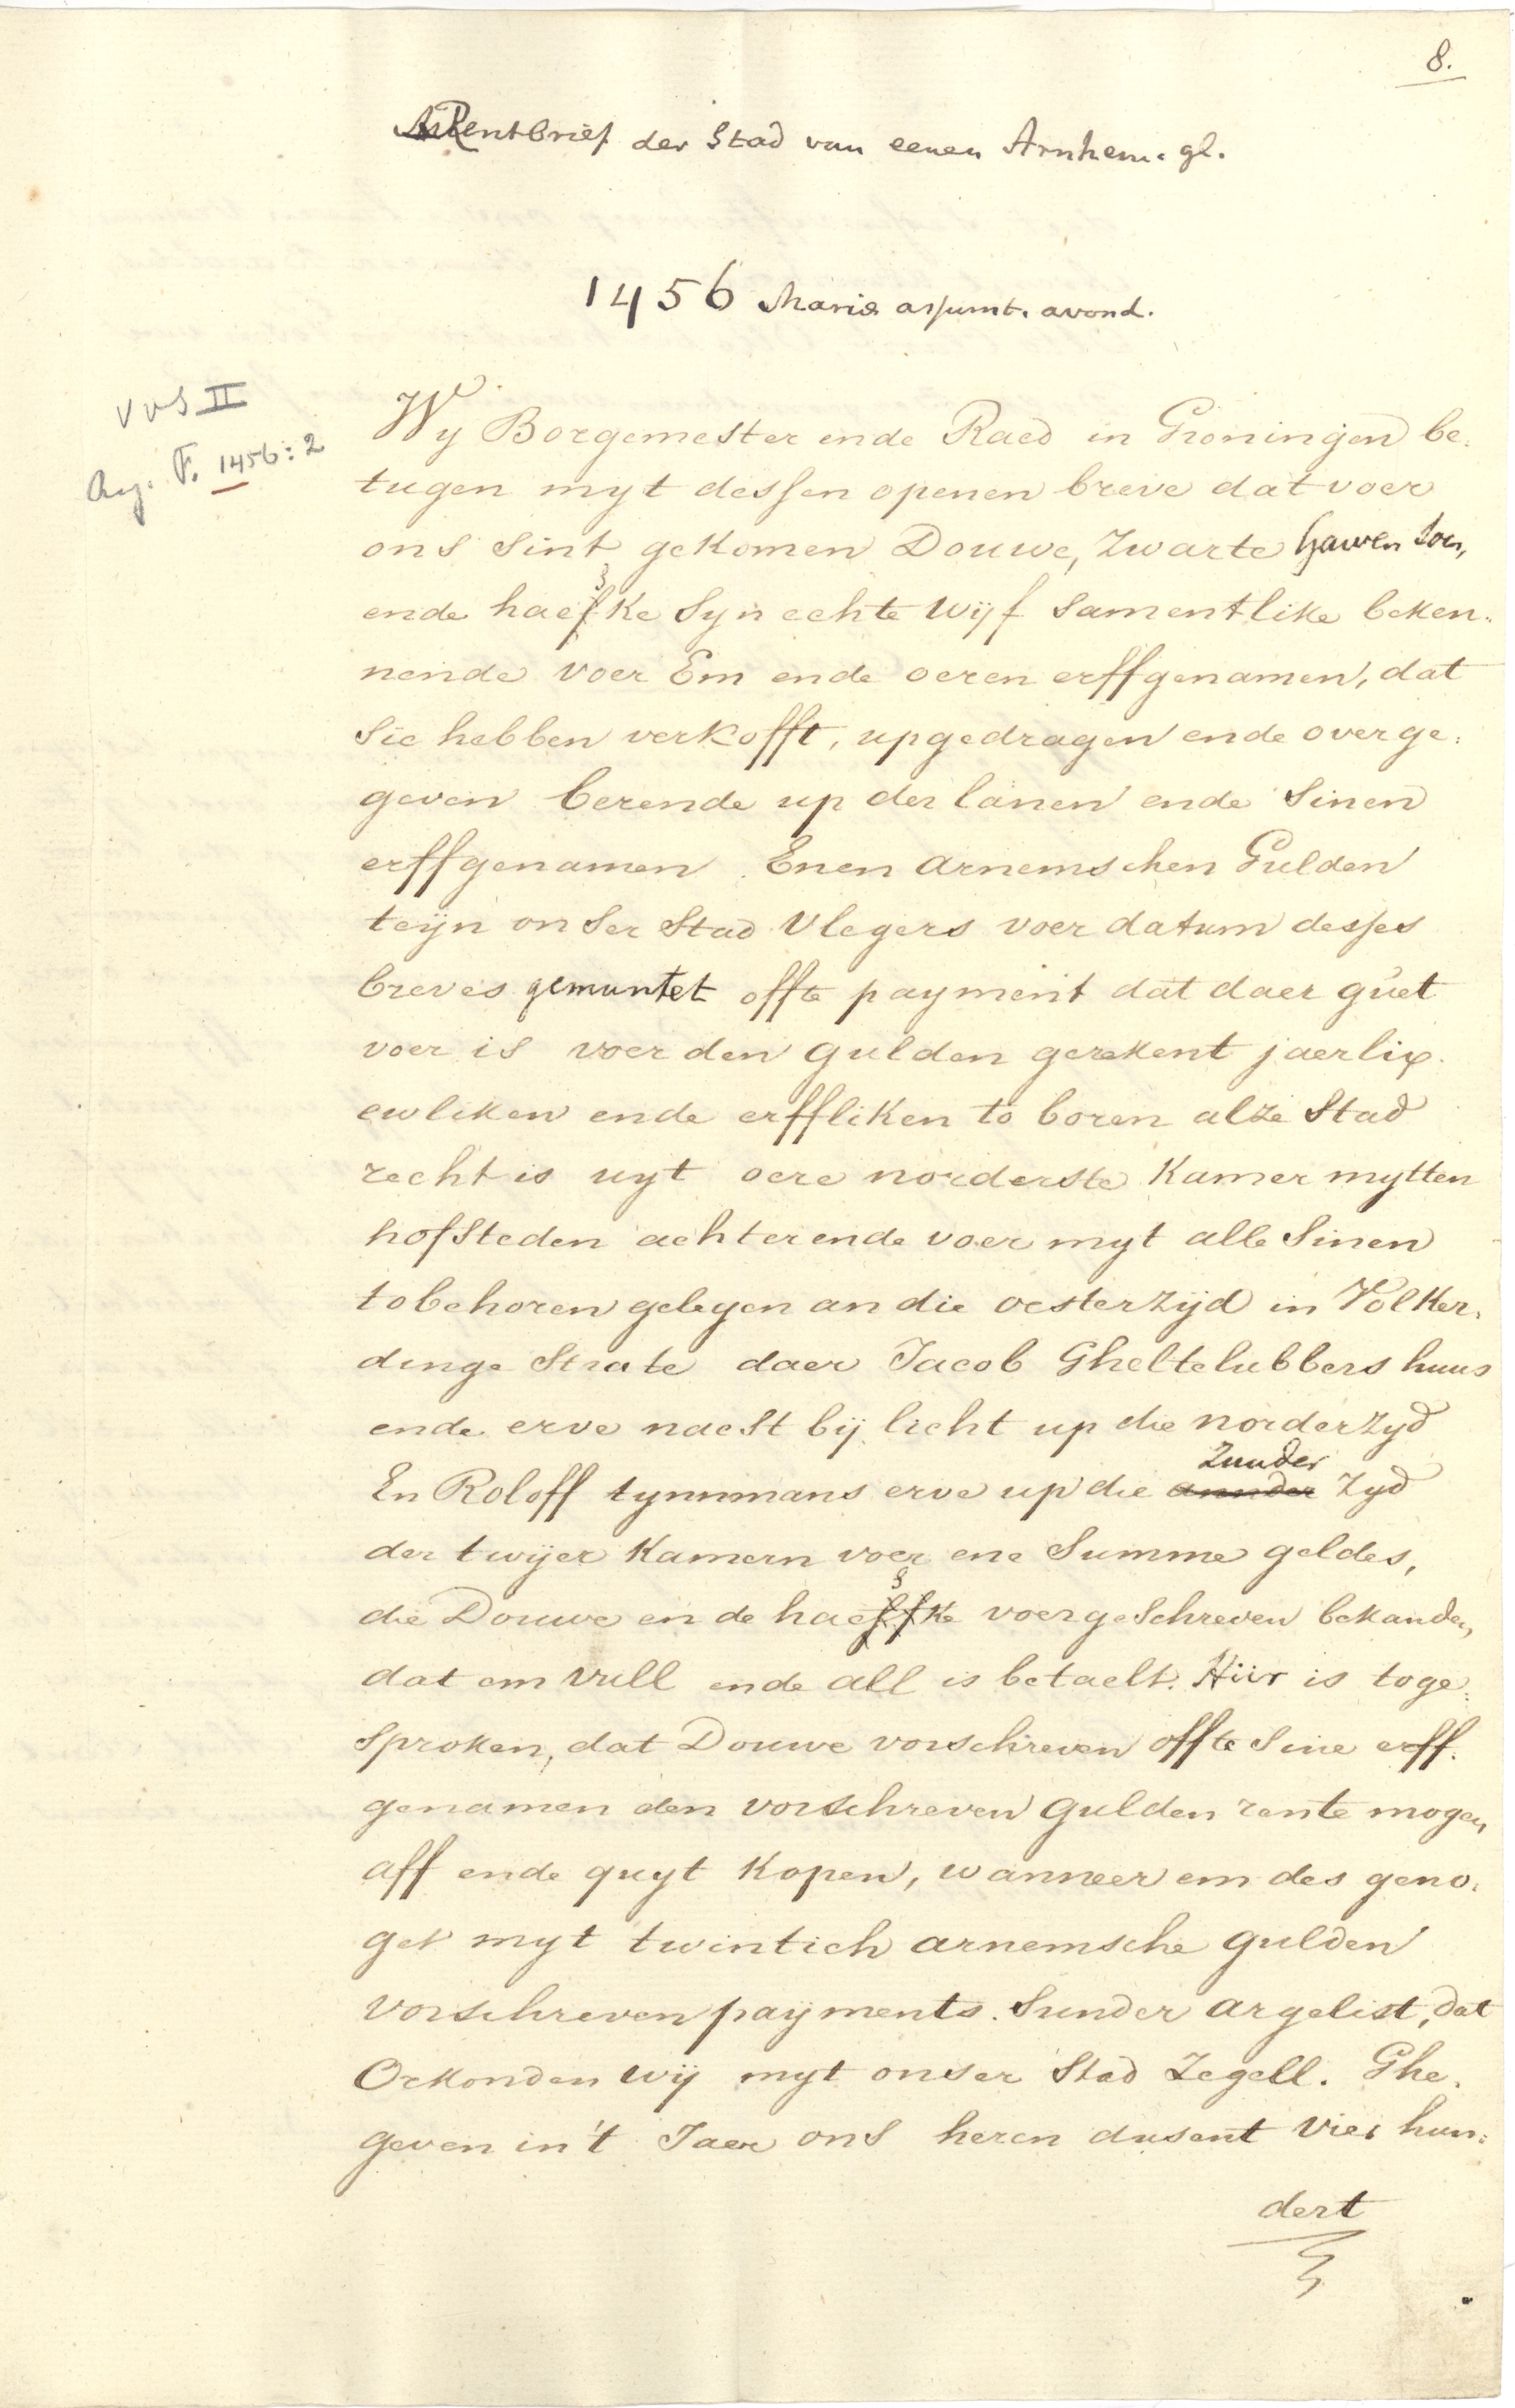 8.
Rentbrief der Stad van eenen Arnhem. gl.
1456 Mariæ assumt. avond.
VvS II
Reg. F. 1456:2
Wy Borgemester ende Raed in Groningen be:
tugen myt dessen openen breve dat voer
ons sint gekomen Douwe, Zwarte hawen soen,
ende haeske syn echte wijf samentlike beken:
nende voer Em ende oeren erffgenamen, dat
sie hebben verkofft, upgedragen ende overge:
geven berende up der lanen ende sinen
erffgenamen Enen arnemschen Gulden
teijn onser Stad vlegers voer datum desses
breves gemuntet offte payment dat daer guet
voer is voer den gulden gerekent jaerlix
ewliken ende erffliken to boren alze Stad
recht is uyt oere norderste Kamer mytten
hofsteden achter ende voer myt alle sinen
tobehoren gelegen an die oesterzijd in Volker:
dinge Strate daer Jacob Gheltelubbers huus
ende erve naest bij licht up die norderzyd
En Roloff tynnmans erve up die zunder zyd
der twijer Kamern voer ene Summe geldes,
die Douwe ende haeske voergeschreven bekanden,
dat em vull ende all is betaelt. Hiir is toge:
sproken, dat Douwe vorschreven offte sine erff:
genamen den vorschreven gulden rente mogen
aff ende quyt kopen, wanneer em des geno:
get myt twintich arnemsche gulden
vorschreven payments. Sunder argelist, dat
Orkonden wij myt onser Stad Zegell. Ghe:
geven in't Jaer ons heren dusent vier hun:
dert